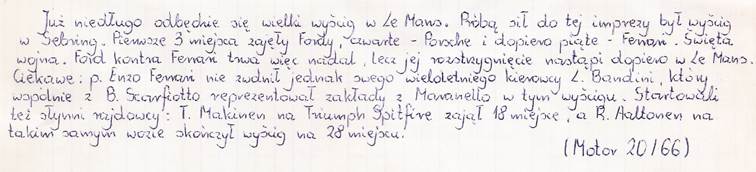 Już niedługo odbędzie się wielki wyścig w Le Mans. Próbą sił do tej imprezy był wyścig
w Sebring. Pierwsze 3 miejsca zajęły Fordy, czwarte - Porsche i dopiero piąte - Ferrari. Święta
wojna. Ford kontra Ferrari trwa więc nadal, lecz jej rozstrzygnięcie nastąpi dopiero w Le Mans.
Ciekawe: p. Enzo Ferrari nie zwolnił jednak swego wieloletniego kierowcy L. Bandini, który
wspólnie z B. Scarfiotto reprezentował zakłady z Maranello w tym wyścigu. Startowali
też słynni rajdowcy: T. Makinen na Triumph Spitfire zajął 18 miejsce, a R. Aaltonen na
takim samym wozie skończył wyścig na 28 miejscu.
(Motor 20/66)